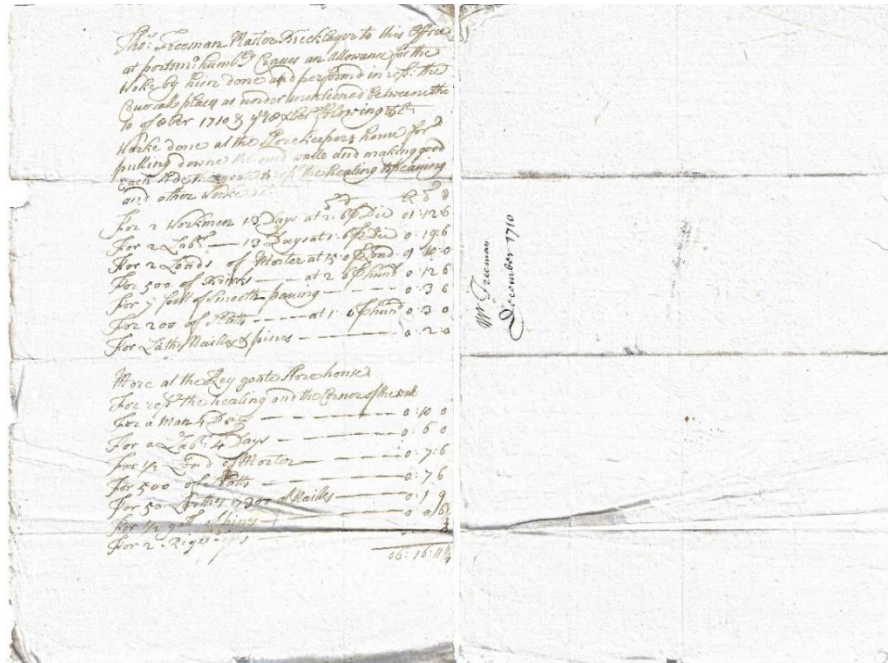 Tho: Freeman Master Bricklayer to this Office
at portsmo humbly Craves an allowance for the
Worke by him done and performd in the
places as under mentioned Betweene the
10 of 8ber 1710 & ye
Worke done at the Storekeepers house for
pulling downe the end walle and making good
Each side the healing
and other Worke
For 2 Workmen 13 Days at 2: 6 p Die 01: 12 6
For 2 Labrs — 13 Days at 1: 6 p Die 0: 19: 6
For 2 Loads of Morter at 15: 0 p Load 01: 10: 0
For 500 of Bricks — at 2: 6 p hund 0: 12 6
For 7 foott of Smooth paving — 0: 3 6
For 200 of Platts — at 1: 6 p hund 0: 3 0
For Laths Nailles & pines — 0: 2: 0
More at the Key gaate Storehouse
For the healing and the Corner of the
For a Man 4 Days — 0: 10 0
For a Labr: 4 Days — 0: 6 0
For 1/2 Load of Morter — 0: 7: 6
For 500 of Platts — 0: 7 6
For 50 Lathes & 200 of Nailles — 0: 1 9
For 1/2 of pines
For 2
06: 16: 11 1/4
Mr Freeman
December 1710